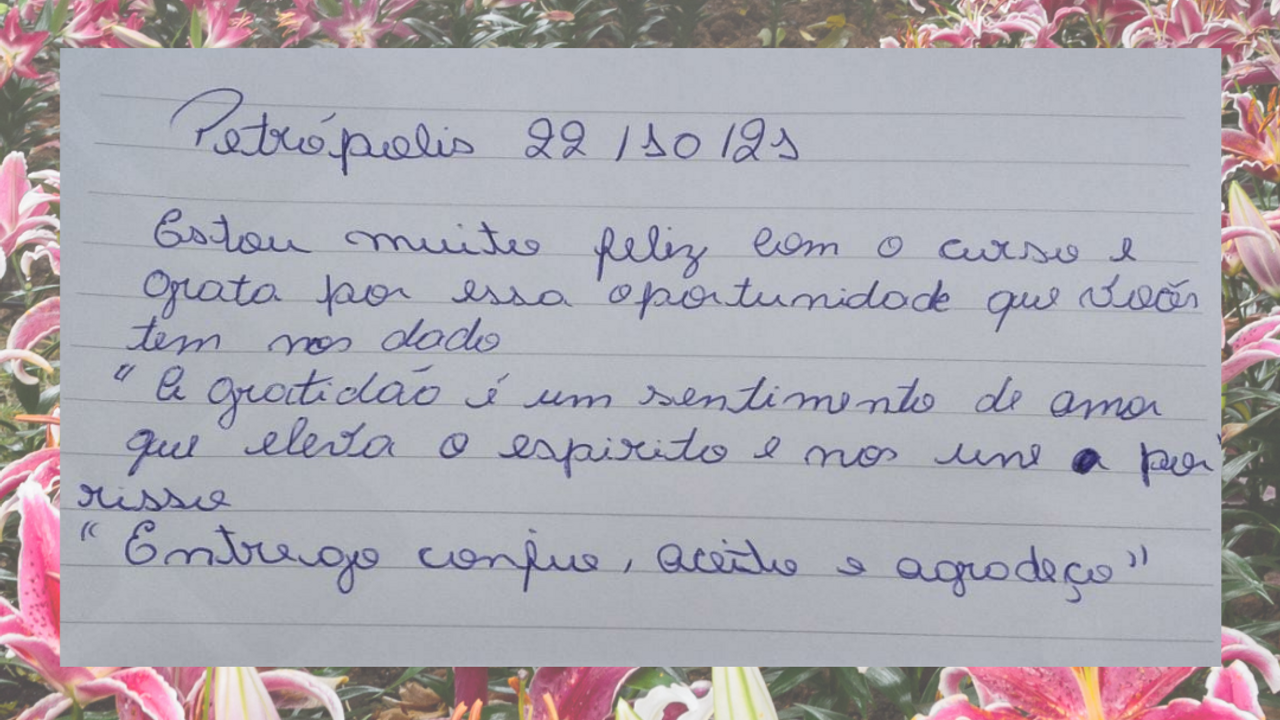 Petrópolis 22/10/21
Estou muito feliz com o curso e
Grata por essa oportunidade que vocês
tem nos dado
"A gratidão é um sentimento de amor
que eleva o espirito e nos une a por
risso
"Entrego confio, aceito e agradeço"